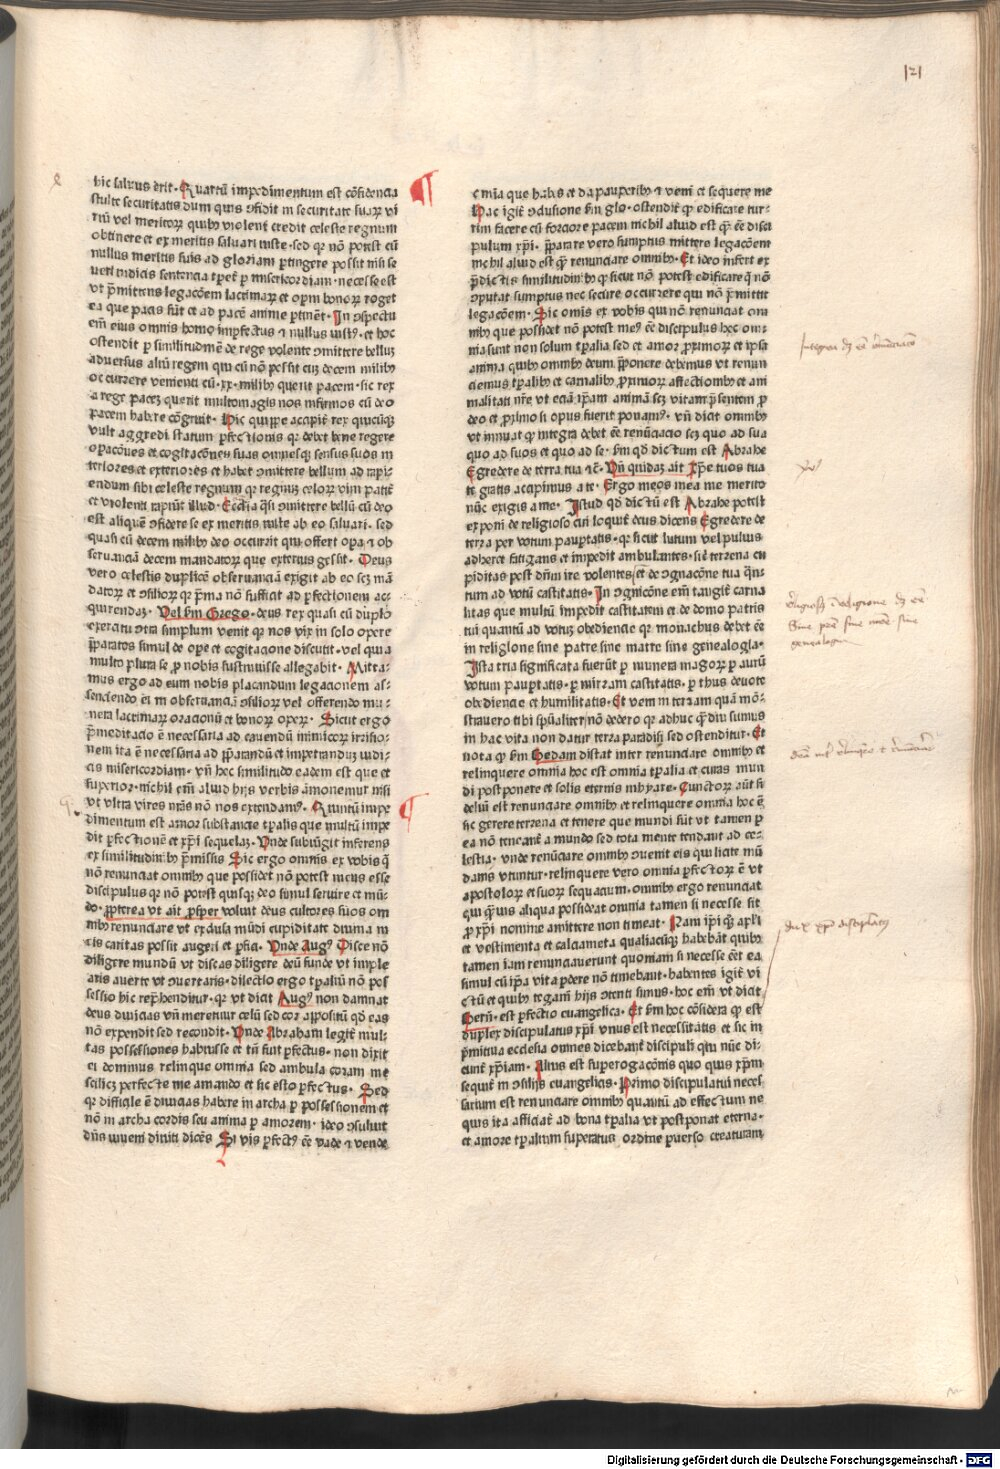 121
hic saluus erit. Quartũ impedimentum est cõfidencia
stulte securitatis dum quis ꝯfidit in securitate suaꝝ vi
riũ vel meritoꝝ quibꝫ violent̃ credit celeste regnum
obtinere et ex meritis saluari iuste. sed qꝛ nõ potest cũ
nullus meritis suis ad gloriam ꝑtingere possit nisi se
ueri iudicis sentencia tꝑet̃ ꝑ misericordiam. necesse est
vt p̃mittens legacõem lacrimaꝝ et opm̃ bonoꝝ roget
ea que pacis sũt et ad pacẽ anime ꝑtinẽt. In ꝯspectu
em̃ eius omnis homo imꝑfectus ⁊ nullus iustꝰ. et hoc
ostendit ꝑ similitudinẽ de rege volente ꝯmittere bellũ
aduersus aliũ regem qui cũ nõ possit cũ decem milibꝫ
occurrere venienti cũ .xx. milibꝫ querit pacem. sic rex
a rege pacẽ querit multomagis nos infirmos cũ deo
pacem habere cõgruit. Hic quippe accipit̃ rex quicũqꝫ
vult aggredi statum ꝑfectionis qꝛ debet bene regere
opacões et cogitacões suas omnesqꝫ sensus suos in
teriores et exteriores et habet ꝯmittere bellum ad rapi
endum sibi celeste regnum qꝛ regnũ celoꝝ vim patit̃
et violenti rapiũt illud. Ecc̃ia q̃si ꝯmittere bellũ cũ deo
est aliquẽ ꝯfidere se ex meritis iuste ab eo saluari. sed
quasi cũ decem milibꝫ deo occurrit qui offert opa ⁊ ob
seruanciã decem mandatoꝝ que exterius gessit. Deus
vero celestis duplicẽ obseruanciã exigit ab eo scꝫ mã
datoꝝ et ꝯsilioꝝ qꝛ p̃ma nõ sufficit ad ꝑfectionem ac
quirendaꝫ. Vel ẜm Grego. deus rex quasi cũ duplo
exercitu ꝯtra simplum venit qꝛ nos vix in solo opere
p̃paratos simul de ope et cogitacione discutit. vel qui a
multo plura se ꝓ nobis sustinuisse allegabit. Mitta
mus ergo ad eum nobis placandum legacionem as
senciendo ei in obseruanciã ꝯsilioꝝ vel offerendo mu
nera lacrimaꝝ oracionũ et bonoꝝ opeꝝ. Sicut ergo
p̃meditacio ẽ necessaria ad cauendũ inimicoꝝ irrisio
nem ita ẽ necessaria ad p̃parandũ et impetrandũ iudi
cis misericordiam. vñ hec similitudo eadem est que et
superior. nichil em̃ aliud hijs verbis ãmonemur nisi
vt vltra vires nr̃as nõ nos extendamꝰ. Quintũ impe
dimentum est amor substancie tꝑalis que multũ impe
dit ꝑfectionẽ et xp̃i sequelaꝫ. Vnde subiũgit inferens
ex similitudinibꝫ p̃missis Sic ergo omnis ex vobis q̃
nõ renunciat omnibꝫ que possidet nõ potest meus esse
discipulus qꝛ nõ potest quisqꝫ deo simul seruire et mũ
do. ꝓpterea vt ait ꝓsper voluit deus cultores suos om
nibꝫ renunciare vt exclusa mũdi cupiditate diuina in
eis caritas possit augeri et ꝑfici. Vnde Augꝰ Disce nõ
diligere mundũ vt discas diligere deũ funde vt imple
aris auerte vt ꝯuertaris. dilectio ergo tꝑaliũ nõ pos
sessio hic rep̃henditur. qꝛ vt dicit Augꝰ non damnat
deus diuicias vñ meretur celũ sed cor appositũ qd̃ eas
nõ expendit sed recondit. Vnde Abraham legit̃ mul
tas possessiones habuisse et tñ fuit ꝑfectus. non dixit
ei dominus relinque omnia sed ambula coram me
scilicꝫ perfecte me amando et sic esto ꝑfectus. Sed
qꝛ difficile ẽ diuicias habere in archa ꝑ possessionem et
nõ in archa cordis seu anima ꝑ amorem. ideo ꝯsuluit
dñs iuueni diuiti dicẽs Si vis ꝑfectꝰ eẽ vade ⁊ vende
omnia que habes et da pauperibꝫ ⁊ veni et sequere me
Hac igit̃ ꝯclusione ẜm glo. ostendit ꝙ edificare tur
rim facere cũ forciore pacem nichil aliud est q̃ eẽ disci
pulum xp̃i. p̃parare vero sumptus mittere legacõem
nichil aliud est q̃ renunciare omnibꝫ. Et ideo infert ex
p̃dictis similitudinibꝫ ꝙ sicut nõ potest edificare q̃ nõ
ꝯputat sumptus nec secure occurrere qui nõ p̃mittit
legacõem. Sic omnis ex vobis qui nõ renunciat om
nibꝫ que possidet nõ potest meꝰ eẽ discipulus hec om
nia sunt non solum tꝑalia sed et amor ꝓximoꝝ et ipsa
anima quibꝫ omnibꝫ deum p̃ponere debemus vt renun
ciemus tꝑalibꝫ et carnalibꝫ ꝓximoꝝ affectionibꝫ et ani
malitati nr̃e vt eciã ip̃am animã scꝫ vitam p̃sentem ꝓ
deo et ꝓximo si opus fuerit ponamꝰ. vñ dicit omnibꝫ
vt innuat ꝙ integra debet eẽ renũciacio scꝫ quo ad sua
quo ad suos et quo ad se. ẜm qd̃ dictum est Abrahe
Egredere de terra tua ⁊c̃. Vñ quidaꝫ ait Xp̃e tuos tua
te gratis accipimus a te. Ergo meos mea me merito
nũc exigis a me. Istud qd̃ dictũ est Abrahe potest
exponi de religioso cui loquit̃ deus dicens Egredere de
terra per votum paupꝑtatis. qꝛ sicut lutum vel puluis
adheret fatigans et impedit ambulantes. sic terrena cu
piditas post dñm ire volentes et de ꝯgnacõne tua q̃n
tum ad votũ castitatis. In ꝯgnicõne em̃ tangit̃ carna
litas que multũ impedit castitatem et de domo patris
tui quantũ ad votũ obediencie qꝛ monachus debet eẽ
in religione sine patre sine matre sine genealogia.
Ista tria significata fuerũt ꝑ munera magoꝝ ꝑ aurũ
votum paupꝑtatis. ꝑ mirram castitatis. ꝑ thus deuote
obediencie et humilitatis. Et veni in terram quã mõ
strauero tibi sp̃ualiter nõ dedero qꝛ adhuc q̃ diu sumus
in hac vita non datur terra paradisi sed ostenditur. Et
nota ꝙ ẜm Bedam distat inter renunciare omnibꝫ et
relinquere omnia hoc est omnia tꝑalia et curas mun
di postponere et solis eternis inhyare. Cunctoꝝ aũt fi
deliũ est renunciare omnibꝫ et relinquere omnia hoc ẽ
sic gerere terrena et tenere que mundi sũt vt tamen ꝑ
ea nõ teneant̃ a mundo sed tota mente tendant ad ce
lestia. vnde renũciare omnibꝫ ꝯuenit eis qui licite mũ
danis vtuntur. relinquere vero omnia ꝑfectoꝝ ẽ vt
apostoloꝝ et suoꝝ sequacium. omnibꝫ ergo renunciat
qui q̃uis aliqua possideat omnia tamen si necesse sit
ꝓ xp̃i nomine amittere non timeat. Nam ip̃i q̃ apl̃i
et vestimenta et calciameta qualiacũqꝫ habebãt quibꝫ
tamen iam renunciauerunt quoniam si necesse eẽt ea
simul cũ ip̃a vita ꝑdere nõ timebant. habentes igit̃ vi
ctũ et quibꝫ tegam̃ hijs ꝯtenti simus. hoc em̃ vt dicit
Bern̄. est ꝑfectio euangelica. Et ẜm hoc cõsidera ꝙ est
duplex discipulatus xp̃i vnus est necessitatis et sic in
p̃mitiua ecclesia omnes dicebant̃ discipuli qui nũc di
cunt̃ xp̃iani. Alius est superogacõnis quo quis xp̃m
sequit̃ in ꝯsilijs euangelijs. Primo discipulatui neces
sarium est renunciare omnibꝫ quantũ ad effectum ne
quis ita afficiat̃ ad bona tꝑalia vt postponat eterna.
et amore tꝑalium superatus ordine ꝑuerso creaturam
Digitalisierung gefördert durch die Deutsche Forschungsgemeinschaft - DFG